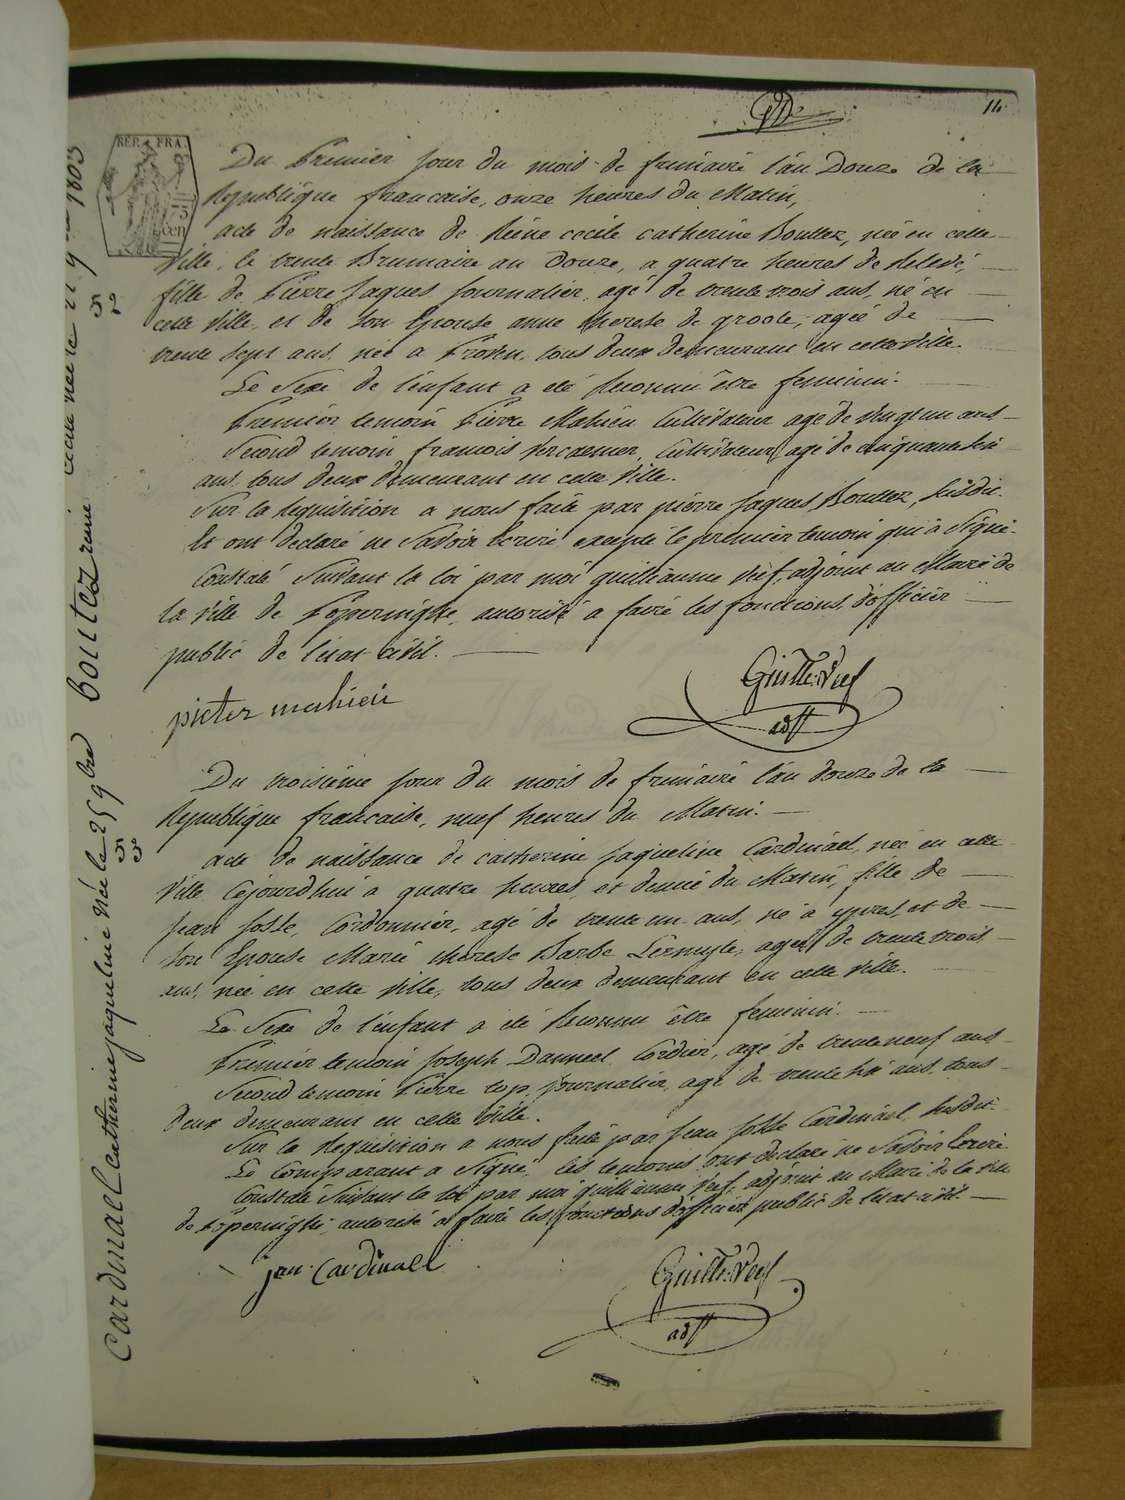 14
REP. FRA.
75
Cen
Du Premier jour du mois de frimaire l'an Douze de la
Republique francaise, onze heures du Matin,
acte de naissance de Reine cecile catherine Bouttez, née en cette
Ville, le trente Brumaire an Douze, a quatre heures de Relevé,
fille de Pierre Jaques Journalier, agé de trente trois ans, né en
cette Ville, et de son Epouse anne therese de groote, agée de
trente sept ans, née a Proven, tous deux demeurant en cette Ville.
Le Sexe de l'enfant a été Reconnu être feminin.
Premier temoin Pierre Mahieu Cultivateur agé de vingt un ans
Second temoin francois Vercaemer, Cultivateur, agé de cinquante six
ans, tous deux demeurant en cette Ville.
Sur la Requisition a nous faite par pierre Jaques Bouttez, susdit.
Et ont declaré ne Savoir Ecrire excepté le premier temoin qui a Signé.
Constaté Suivant la loi par moi guilliaume Veif, adjoint au Maire de
la Ville de Poperinghe, autorisé a faire les fonctions d'officier
public de l'etat civil.
pieter mahieu
Guille. Veif
adjt
Du troisième jour du mois de frimaire l'an douze de la
Republique francaise, neuf heures du Matin.
acte de naissance de catherine Jaqueline Cardinael, née en cette
Ville Cejourdhui a quatre heures et demie du Matin, fille de
Jean Josse, Cordonnier, agé de trente un ans, né à ypres, et de
son Epouse Marie therese Barbe agée de trente trois
ans, née en cette Ville, tous deux demeurant en cette Ville.
Le Sexe de l'enfant a été Reconnu être feminin.
Premier temoin Joseph Danneel Cordier, agé de trente neuf ans
Second temoin Pierre top, journalier, agé de trente six ans, tous
deux demeurant en cette Ville.
Sur la Requisition a nous faite par Jean Josse Cardinael, susdit.
Le Comparant a Signé, les temoins ont declaré ne Savoir Ecrire
Constaté Suivant la loi par moi guilliaume Veif, adjoint au Maire de la Ville
de Poperinghe, autorisé a faire les fonctions d'officier public de l'etat civil.
jan Cardinael
Guille. Veif
adjt
boutez reine Cecile née le 21 9 1803
52
Cardinael Catherine jaqueline née le 25 9bre
53